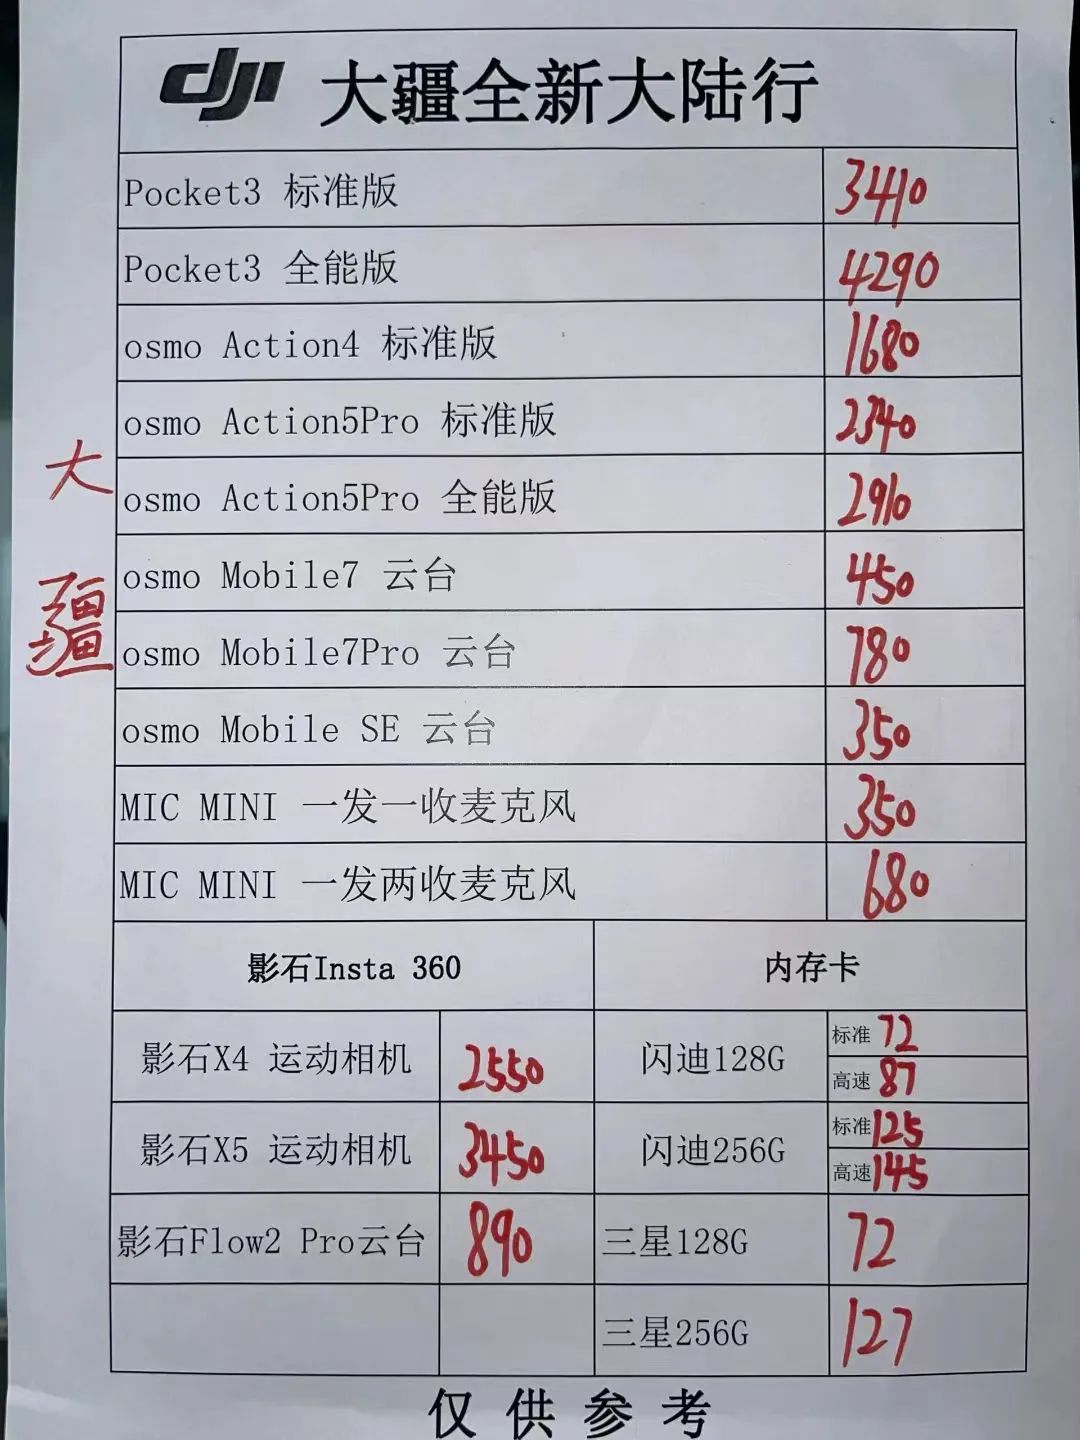 dji 大疆全新大陆行
Pocket3 标准版 3410
Pocket3 全能版 4290
osmo Action4 标准版 1680
osmo Action5Pro 标准版 2340
osmo Action5Pro 全能版 2910
osmo Mobile7 云台 450
osmo Mobile7Pro 云台 780
osmo Mobile SE 云台 350
MIC MINI 一发一收麦克风 350
MIC MINI 一发两收麦克风 680
大疆
影石Insta 360 内存卡
影石X4 运动相机 2550 闪迪128G 标准 72
高速 87
影石X5 运动相机 3450 闪迪256G 标准 125
高速 145
影石Flow2 Pro云台 890 三星128G 72
三星256G 127
仅供参考